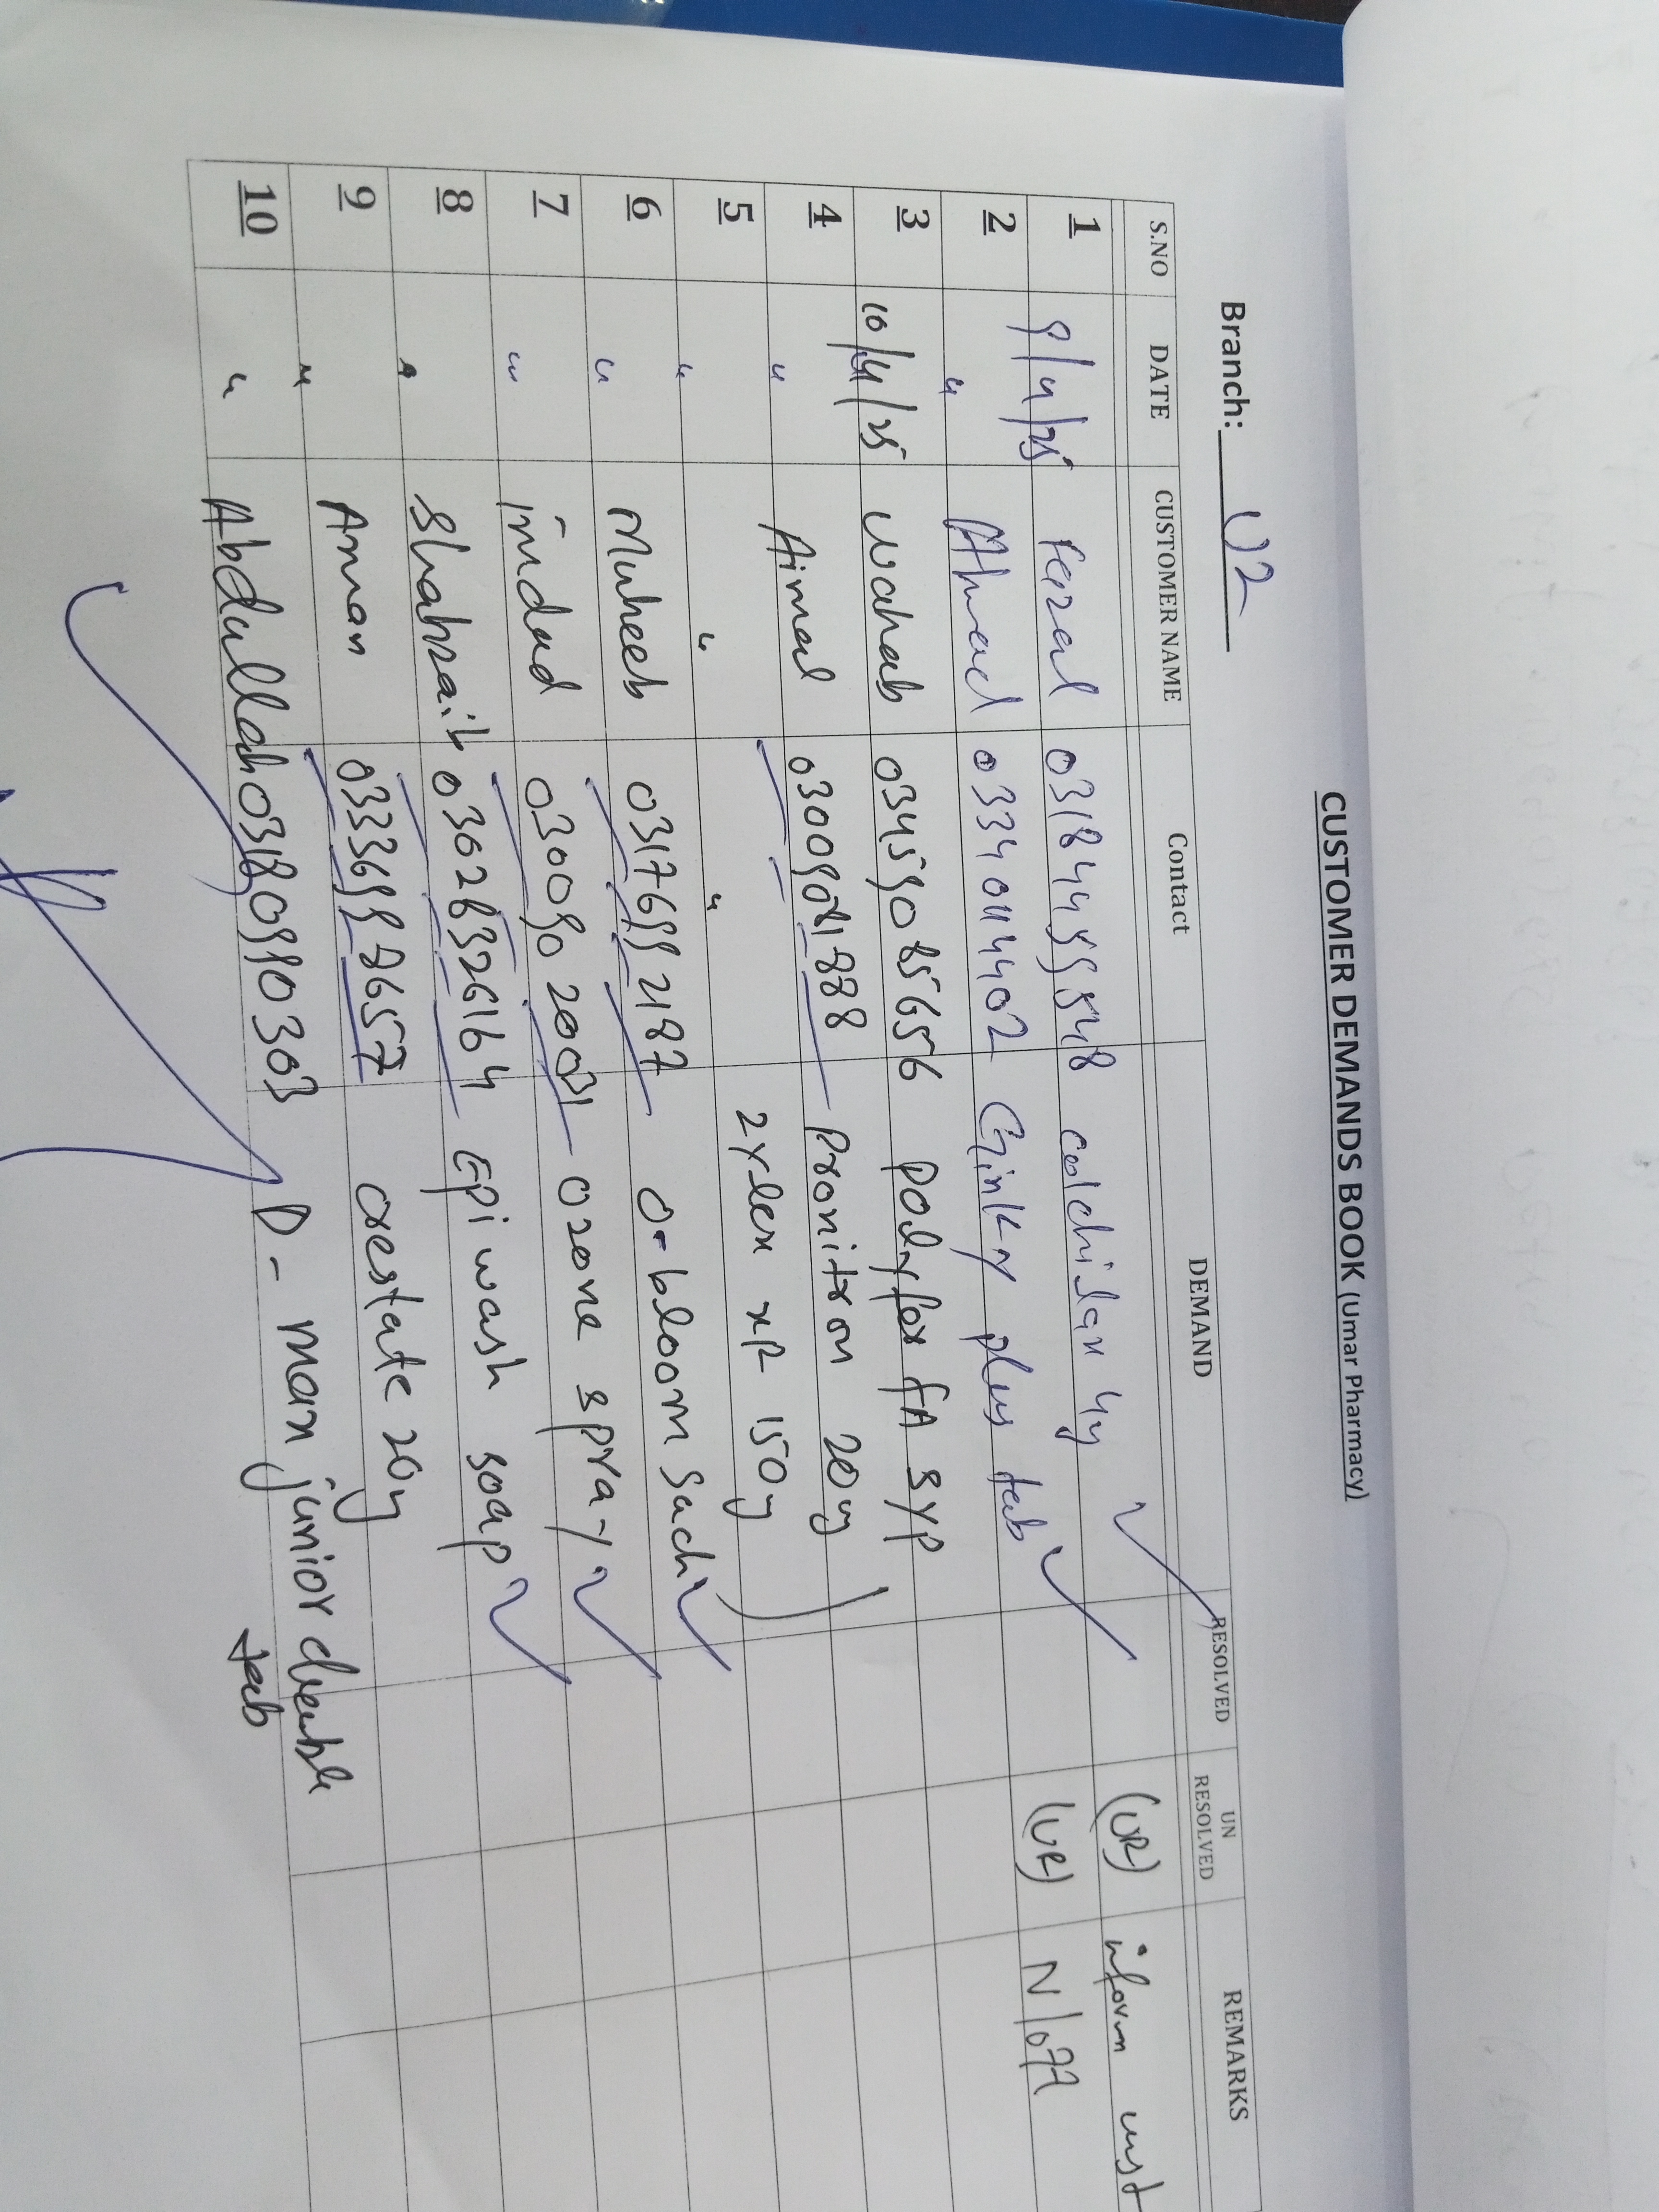 CUSTOMER DEMANDS BOOK (Umar Pharmacy)
Branch: U2
S.NO DATE CUSTOMER NAME Contact DEMAND RESOLVED UN RESOLVED REMARKS
1 9/4/25 Fazal colchilax (UR) inform cust
2 " Ahmad 03340114402 Ginkgy plus tab (UR) N/077
3 10/4/25 Wahab 03459085656 polyfer FA syp
4 " Aimal 03009081888 Pronitron 20mg
5 " " " zylex XR 150mg
6 " Muheeb 03176992187 O-bloom Sach
7 " imdad 03009020021 ozone spray
8 " Shahzaib 03028326164 Epi wash soap
9 " Aman 03336998657 orestate 20mg
10 " Abdullah 03180990303 D-max junior chewable
tab